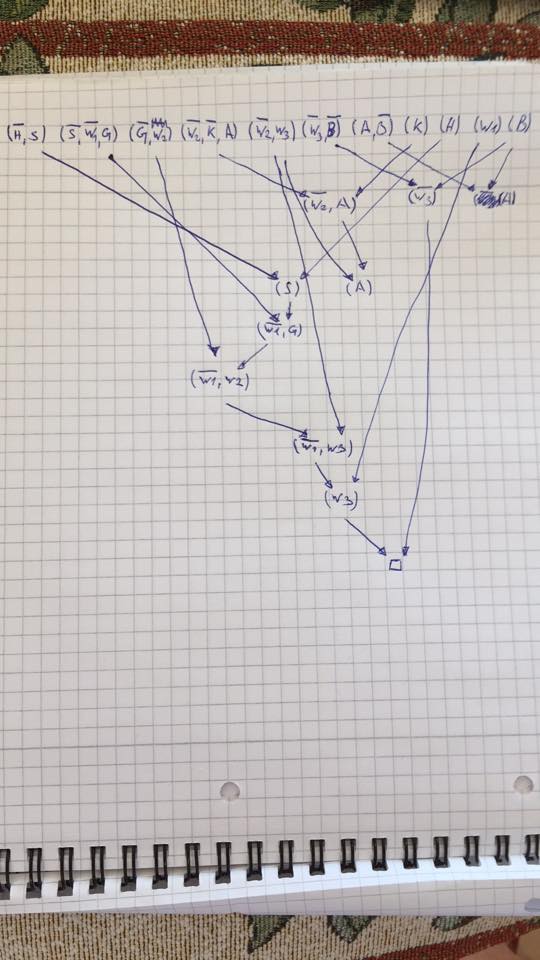 (H̅,S) (S̅,W̅1,G) (G̅,W2) (W̅2,K̅,A) (W̅2,W3) (W̅3,B̅) (A,B̅) (K) (H) (W1) (B)
(W̅2,A) (W̅3) (A)
(S) (A)
(W̅1,G)
(W̅1,W2)
(W̅1,W3)
(W3)
□